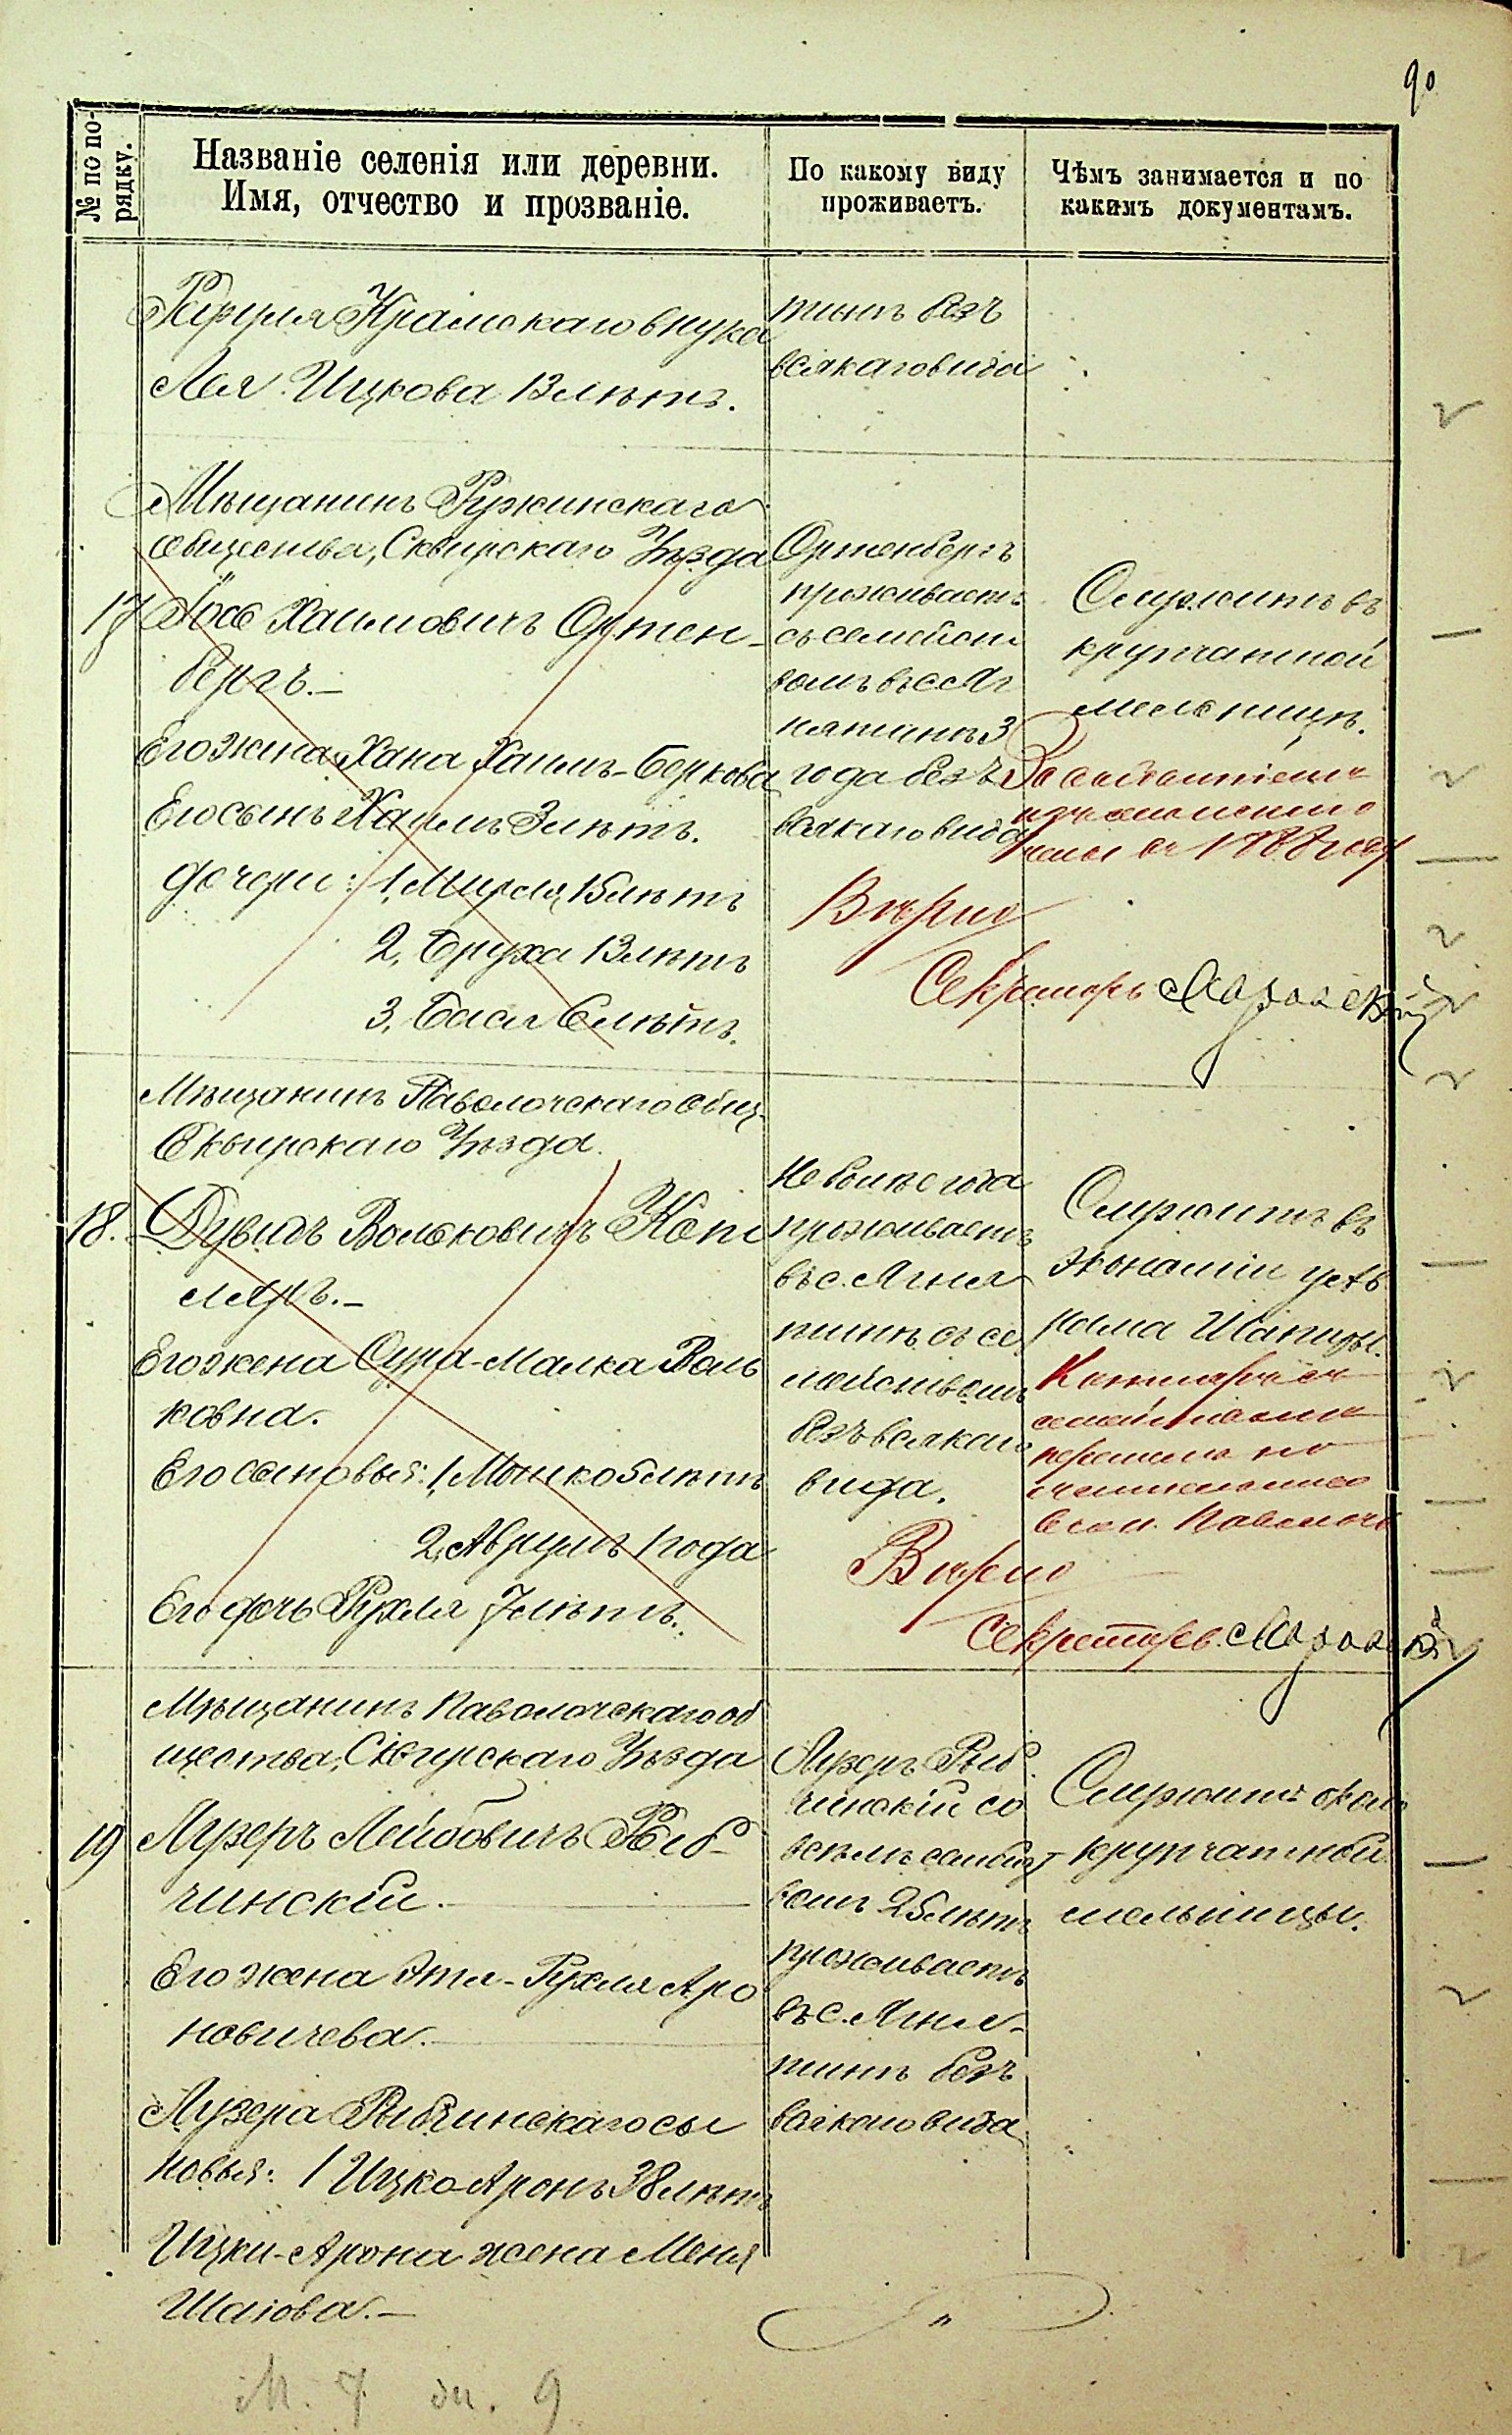 90
№ по по-
рядку.
Названіе селенія или деревни.
Имя, отчество и прозваніе.
По какому виду
проживаетъ.
Чѣмъ занимается и по
какимъ документамъ.
Крамскаго внука
Лея Ицкова 13 лѣтъ.
тинѣ безъ
всякаго вида
Мѣщанинъ Ружинскаго
общества, Сквирскаго Уѣзда
17 Іось Хаимовичъ Ортен-
бергъ.—
Его жена Хана Хаимъ-Беркова
Его сынъ Хаимъ 3 лѣтъ.
дочери: 1, Мирля 15 лѣтъ
2, Бруха 13 лѣтъ
3, Бася 6 лѣтъ.
Ортенбергъ
проживаетъ
съ семейст
вомъ въ с. Яг
нятинѣ 3
года безъ
всякаго вида
Служитъ въ
крупчатной
мельницѣ.
въ 1888 году
Вѣрно
Секретарь
Мѣщанинъ Паволочскаго общ.
Сквирскаго Уѣзда.
18. Дувидъ Вольковичъ Кот
ляръ.—
Его жена Сура-Малка Воль
ковна.
Его сыновья: 1, Мошко 5 лѣтъ
2, Аврумъ 1 года
Его дочь Рухля 7 лѣтъ.
Не болѣе года
проживаетъ
въ с. Ягня
тинѣ съ се
мействомъ
безъ всякаго
вида.
Служитъ въ
экономіи у Ав
рама Шапиры.
Котляръ съ
семействомъ
Паволочь
Вѣрно
Секретарь
Мѣщанинъ Паволочскаго об
щества, Сквирскаго Уѣзда
19 Лузеръ Лейбовичъ Рыб-
чинскій.
Его жена Этя-Рухля Аро
новичева.
Лузера Рыбчинскаго сы
новья: 1 Ицко-Аронъ 38 лѣтъ
Ицки-Арона жена Меня
Шаіова.—
Лузеръ Рыб
чинскій со
всѣмъ семейст
вомъ 25 лѣтъ
проживаетъ
въ с. Ягня-
тинѣ безъ
всякаго вида
Служитъ около
крупчатной
мельницы.
М. 7 оп. 9